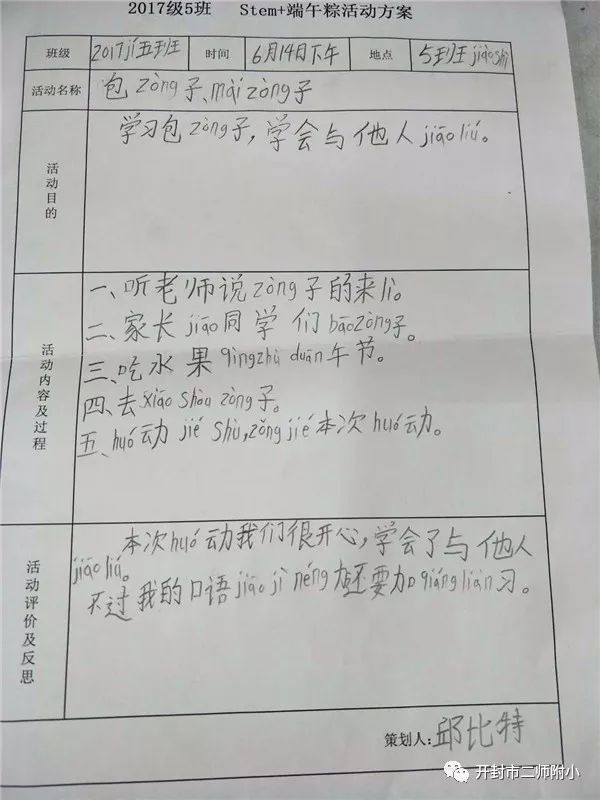 2017级5班 Stem+端午粽活动方案
班级 2017jí五班 时间 6月14日下午 地点 5班jiàoshì
活动名称 包zòng子、mài zòng子
活动目的 学习包zòng子，学会与他人jiāo liú。
活动内容及过程
一、听老师说zòng子的来lì。
二、家长jiāo同学们bāo zòng子。
三、吃水果qìngzhù duān午节。
四、去xiāo shòu zòng子。
五、huó动 jié shù，zǒng jié本次huó动。
活动评价及反思
本次huó动我们很开心，学会了与他人
jiāo liú。
不过我的口语jiāo jì néng力还要加qiáng liàn习。
策划人：邱比特
开封市二师附小